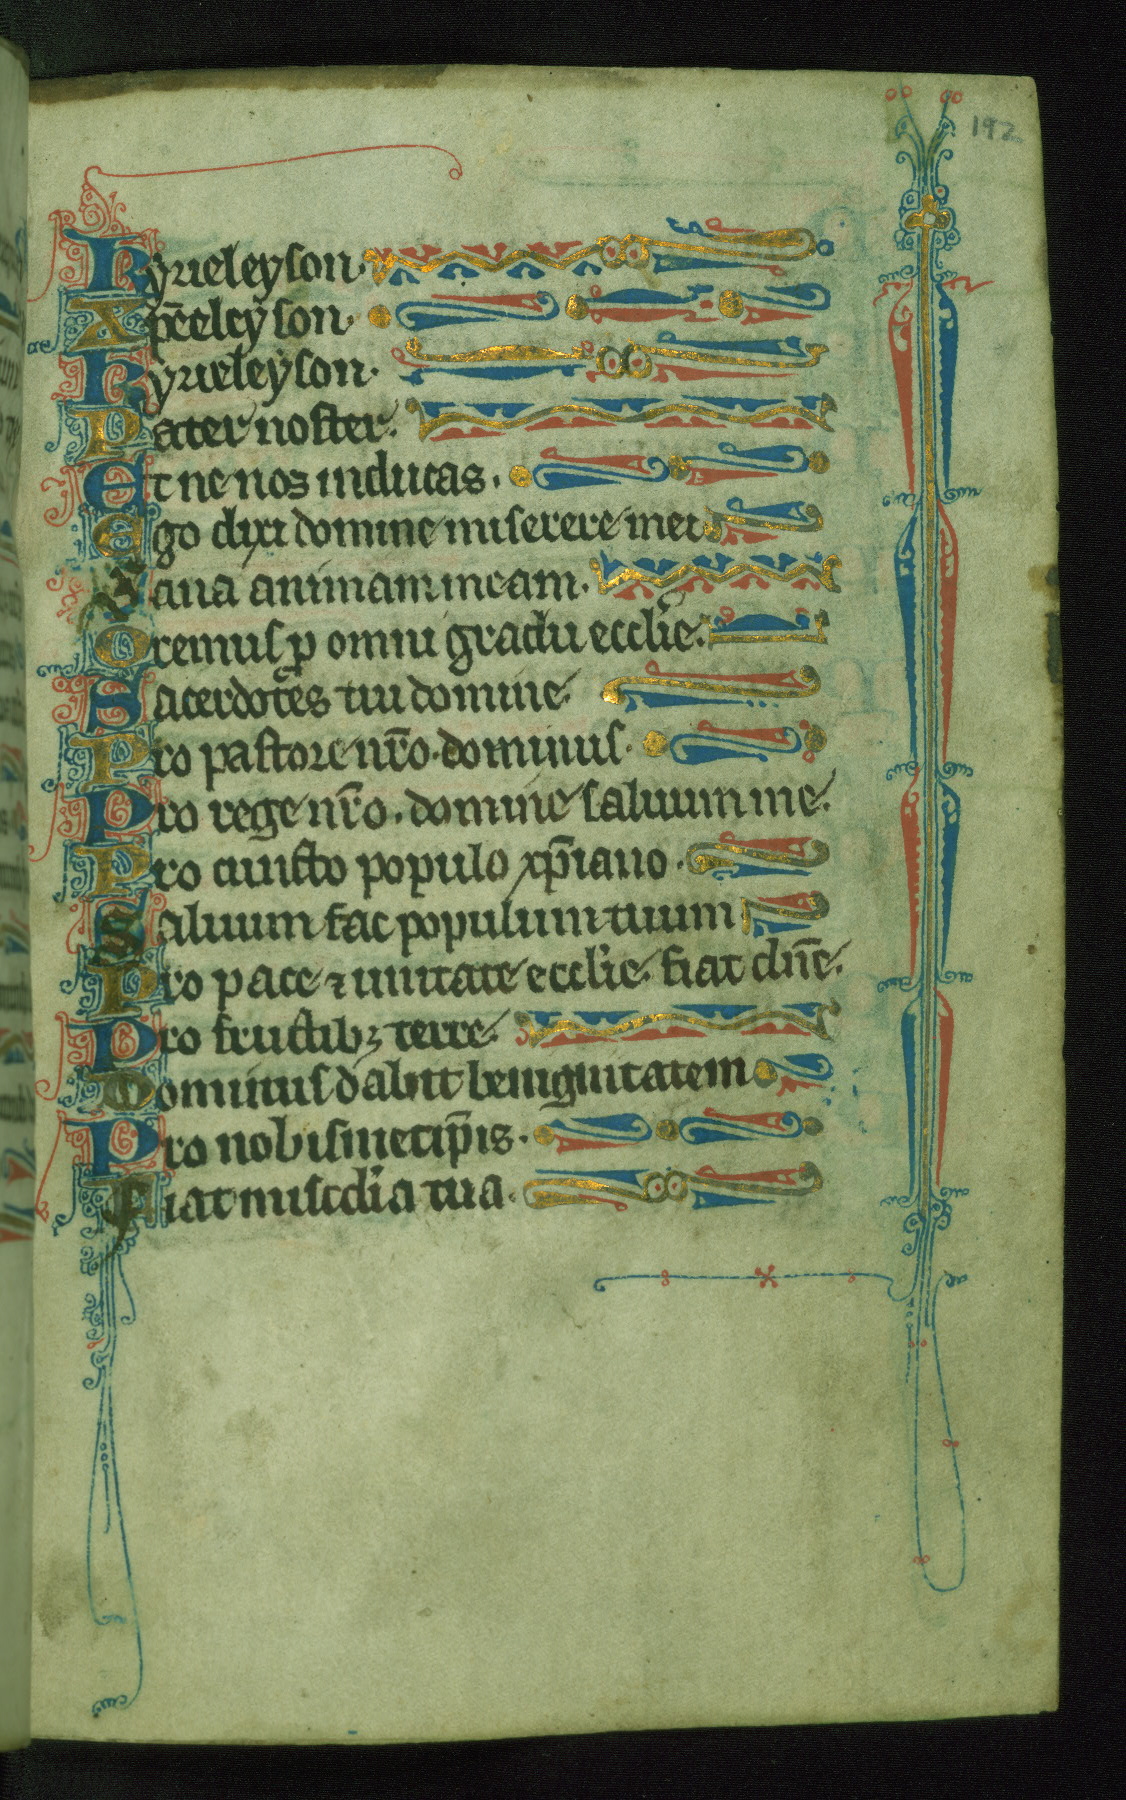 192
Kyrieleyson.
Xp̄eleyson.
Kyrieleyson.
Pater noster.
Et ne nos inducas.
Ego dixi domine miserere mei
Sana animam meam.
Oremus p̲ omni gradu eccl̄ie.
Sacerdotes tui domine
Pro pastore nr̄o. dominus.
Pro rege nr̄o. domine saluum me.
Pro cuncto populo xp̄iano.
Saluum fac populum tuum
Pro pace ⁊ unitate eccl̄ie. fiat dn̄e.
Pro fructibꝫ terre.
Dominus dabit benignitatem
Pro nobismetip̄is.
Fiat misc̄dia tua.